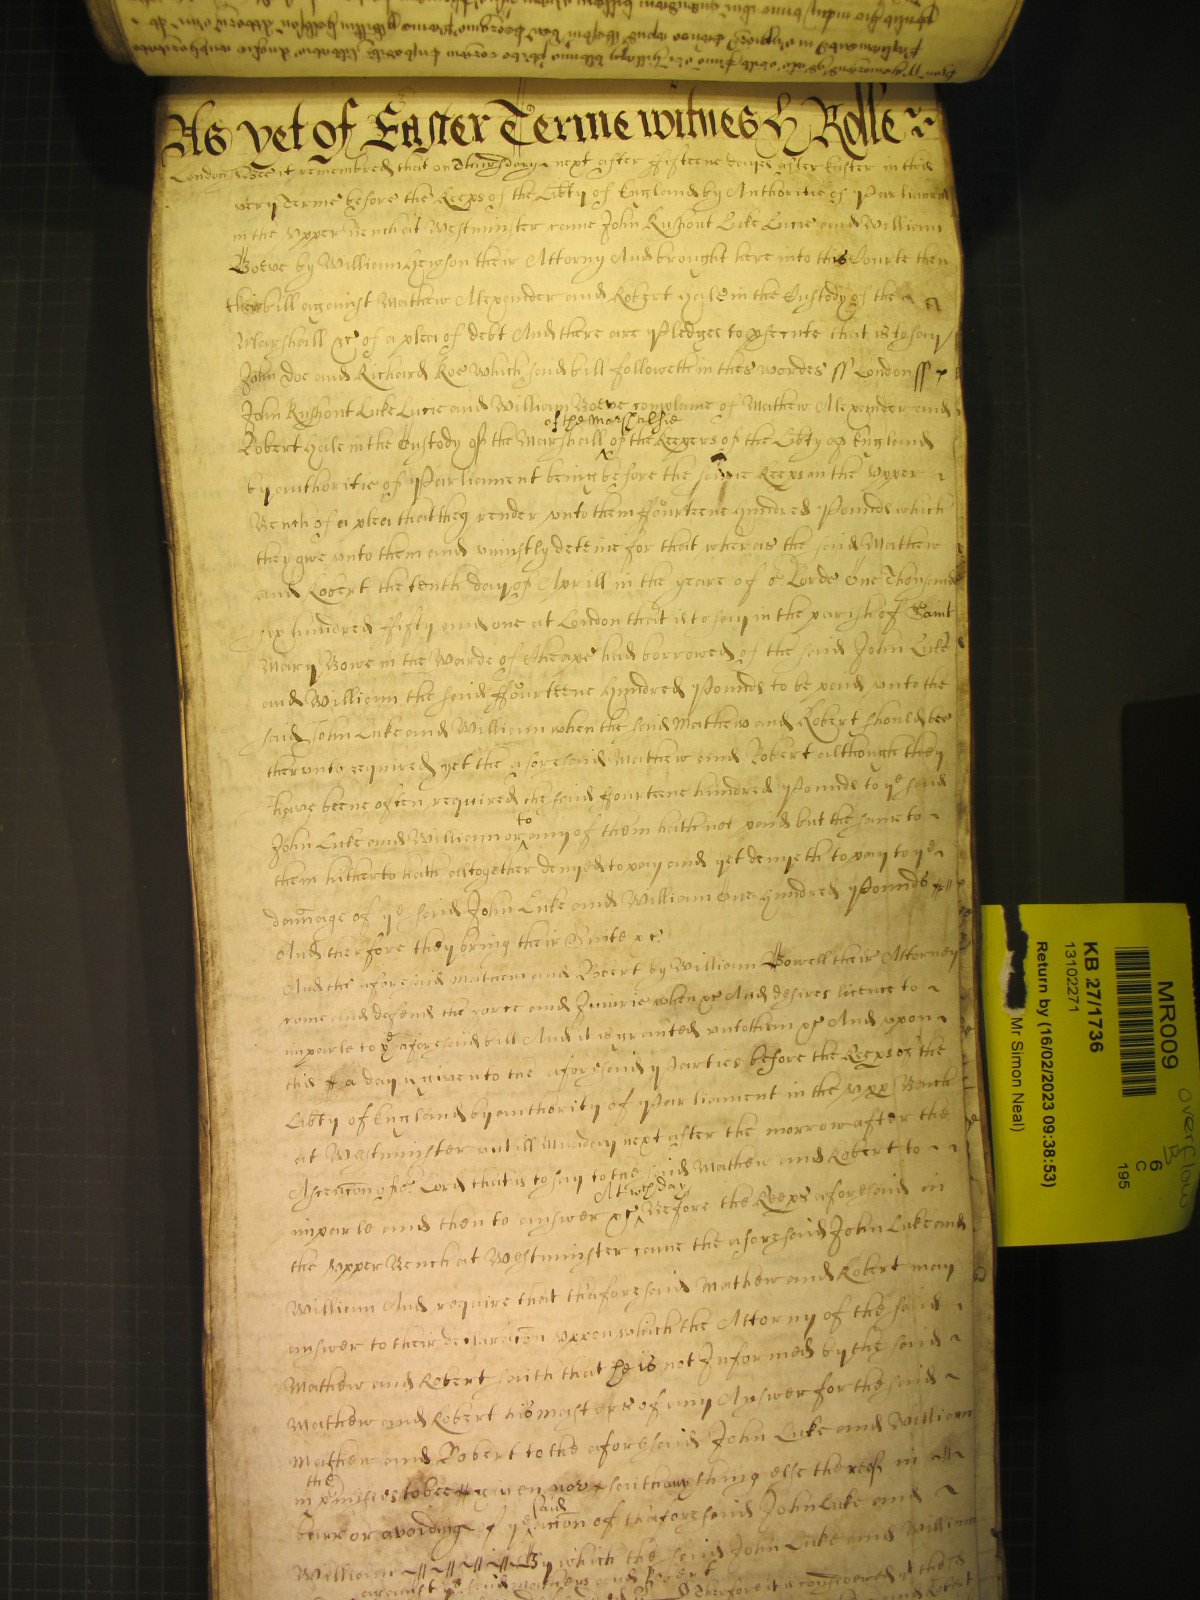 As yet of Easter Terme witnes H Rolle
London ss Bee it remembred that on Thursday next after fifteene dayes after Easter in this
very Terme before the Keeps of the Libty of England by Authoritie of Parliament
in the Upper Bench at Westminster came John Rushout Luke Lucie and William
Boeve by William Hewson their Attorny And brought here into this Courte then
their bill against Mathew Alexander and Robert Hale in the Custody of the
Marshall &c of a plea of debt And there are Pledges to psecute that is to say
John Doe and Richard Roe Which said bill followeth in thes wordes ss London ss
John Rushout Luke Lucie and William Boeve complaine of Mathew Alexander and
of the Marshalsie
Robert Hale in the Custody of the Marshall of the Keepers of the Libty of England
by authoritie of Parliament being before the same Keeps in the Upper
Bench of a plea that they render unto them ffourteene hundred Pounds which
they owe unto them and uniustly deteine for that wheras the said Mathew
and Robert the tenth day of Aprill in the yeare of or Lorde One Thousand
six hundred fifty and one at London that is to say in the parish of Saint
Mary Bowe in the Warde of Cheape had borrowed of the said John Luke
and William the said ffourteene hundred Pounds to be paid unto the
said John Luke and William when the said Mathew and Robert should bee
therunto required yet the aforesaid Mathew and Robert although they
have beene often required the said ffourteene hundred Pounds to ye said
to
John Luke and William or any of them hath not paid but the same to
them hitherto hath altogether denyed to pay and yet denyeth to pay to ye
damage of ye said John Luke and William One hundred Pounds
And therfore they bring their Suite &c
And the aforesaid Mathew and Robert by William Bowell their Attorney
come and defend the force and Iniurie when &c And desires licence to
imparle to ye aforesaid bill And it is granted unto them &c And upon
this a day is given to the aforesaid Parties before the Keeps of the
Libty of England by authority of Parliament in the Upp Bench
at Westminster untill Munday next after the morrow after the
Ascencon of or Lord that is to say to the said Mathew and Robert to
At wch day
imparle and then to answer &c Before the Keeps aforesaid in
the Upper Bench at Westminster came the aforesaid John Luke and
William And require that thaforesaid Mathew and Robert may
answer to their declaracon uppon which the Attorny of the said
Mathew and Robert saith that he is not Informed by the said
Mathew and Robert his masters of any Answer for the said
Mathew and Robert to the aforesaid John Luke and William
the
in pmises to bee given nor saith any thing else thereof in
said
barr or avoiding of ye accon of thaforesaid John Luke and
William By which the said John Luke and William
against ye said Mathew and Robert Therfore it is considered
MR009
6
C
195
overflow
B
KB 27/1736
13102271
Return by (16/02/2023 09:38:53)
Mr Simon Neal)